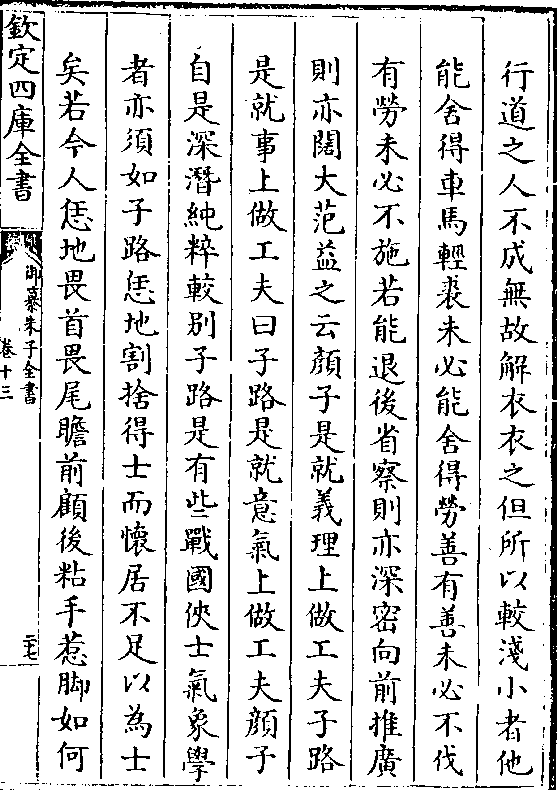 行道之人不成無故解衣衣之但所以較淺小者他
能舍得車馬輕裘未必能舍得勞善有善未必不伐
有勞未必不施若能退後省察則亦深密向前推廣
則亦闊大范益之云顔子是就義理上做工夫子路
是就事上做工夫曰子路是就意氣上做工夫顔子
自是深潛純粹較别子路是有些戰國俠士氣象學
者亦須如子路恁地割捨得士而懷居不足以為士
矣若今人恁地畏首畏尾瞻前顧後粘手惹脚如何
欽定四庫全書
御纂朱子全書
卷十三
二七